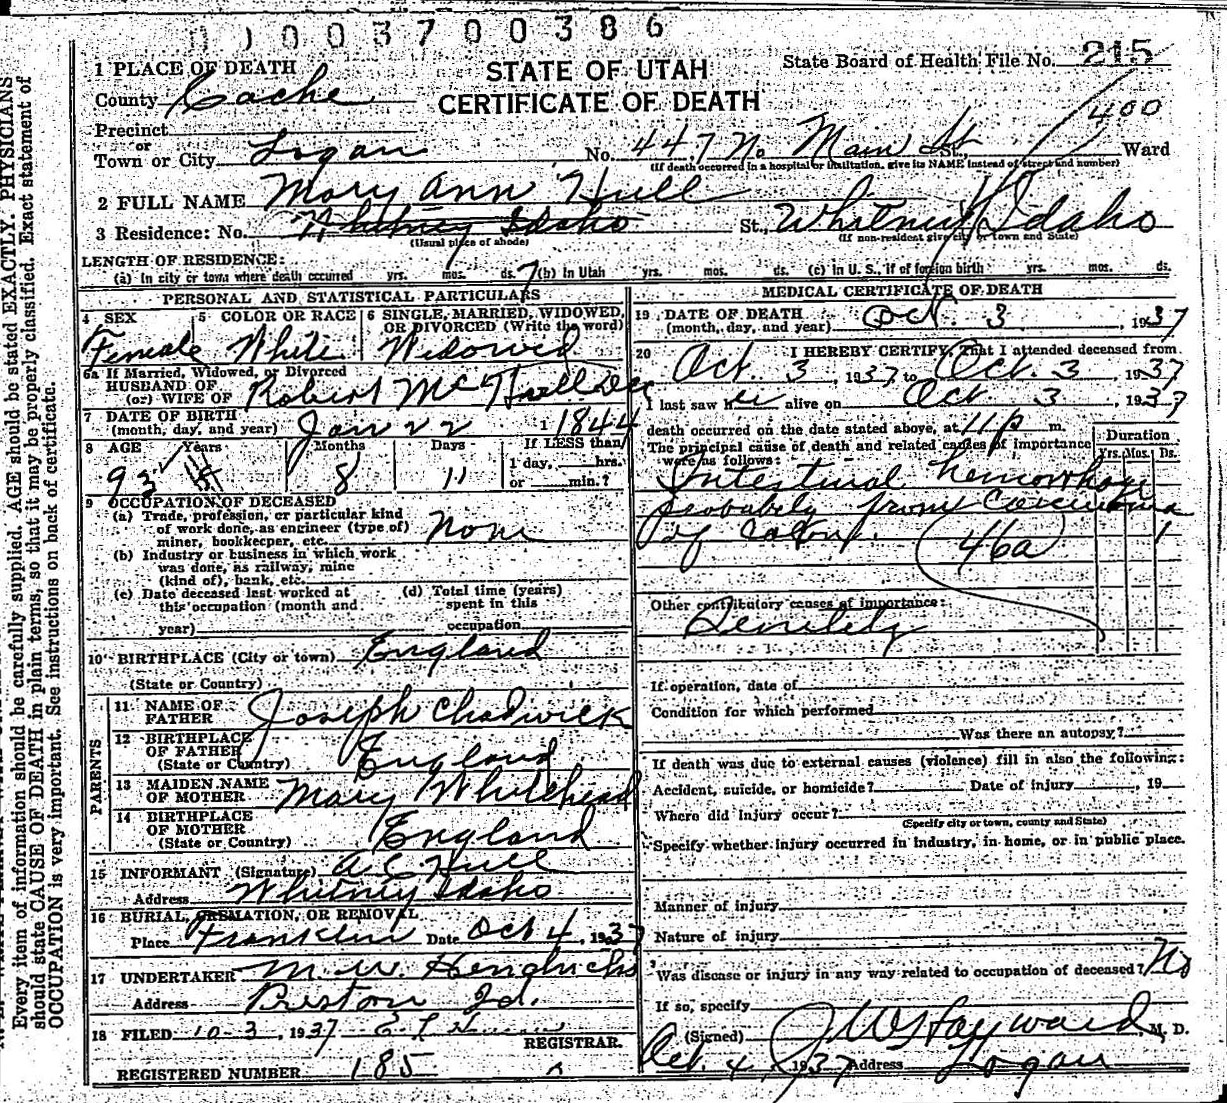 0 0 0 3 7 0 0 3 8 6
STATE OF UTAH
CERTIFICATE OF DEATH
State Board of Health File No. 215
400
1 PLACE OF DEATH
County Cache
Precinct
or
Town or City Logan No. 447 No Main St St., Ward
(If death occurred in a hospital or institution, give its NAME instead of street and number)
2 FULL NAME Mary Ann Hull
3 Residence: No. Whitney Idaho St., Whitney Idaho
(Usual place of abode) (If non-resident give city or town and State)
LENGTH OF RESIDENCE:
(a) In city or town where death occurred yrs. mos. ds. 7 (b) In Utah yrs. mos. ds. (c) In U. S., if of foreign birth yrs. mos. ds.
PERSONAL AND STATISTICAL PARTICULARS
4 SEX 5 COLOR OR RACE 6 SINGLE, MARRIED, WIDOWED,
OR DIVORCED (Write the word)
Female White Widowed
6a If Married, Widowed, or Divorced
HUSBAND OF
(or) WIFE OF Robert Mc Hull Dec
7 DATE OF BIRTH
(month, day, and year) Jan 22 1844
8 AGE Years Months Days If LESS than
1 day, hrs.
or min.?
93 8 11
9 OCCUPATION OF DECEASED
(a) Trade, profession, or particular kind
of work done, as engineer (type of)
miner, bookkeeper, etc. None
(b) Industry or business in which work
was done, as railway, mine
(kind of), bank, etc.
(c) Date deceased last worked at
this occupation (month and
year)
(d) Total time (years)
spent in this
occupation
10 BIRTHPLACE (City or town) England
(State or Country)
PARENTS
11 NAME OF
FATHER Joseph Chadwick
12 BIRTHPLACE
OF FATHER
(State or Country) England
13 MAIDEN NAME
OF MOTHER Mary Whitehead
14 BIRTHPLACE
OF MOTHER
(State or Country) England
15 INFORMANT (Signature) A C Hull
Address Whitney Idaho
16 BURIAL, CREMATION, OR REMOVAL
Place Franklin Date Oct 4, 1937
17 UNDERTAKER M. W. Hendricks
Address Preston Id.
18 FILED 10-3, 1937
REGISTRAR.
REGISTERED NUMBER 185
MEDICAL CERTIFICATE OF DEATH
19 DATE OF DEATH
(month, day, and year) Oct. 3, 1937
20 I HEREBY CERTIFY, That I attended deceased from
Oct. 3, 1937 to Oct. 3, 1937
I last saw her alive on Oct 3, 1937
death occurred on the date stated above, at 11 p m.
The principal cause of death and related causes of importance
were as follows:
Duration
Yrs. Mos. Ds.
Intestinal hemorrhage
probably from Carcinoma
of Colon. 1
46a
Other contributory causes of importance:
Senility
If operation, date of
Condition for which performed
Was there an autopsy?
If death was due to external causes (violence) fill in also the following:
Accident, suicide, or homicide? Date of injury , 19
Where did injury occur?
(Specify city or town, county and State)
Specify whether injury occurred in industry, in home, or in public place.
Manner of injury
Nature of injury
Was disease or injury in any way related to occupation of deceased? No
If so, specify
(Signed) J W Hayward, M. D.
Oct. 4, 1937 Address Logan
Every item of information should be carefully supplied. AGE should be stated EXACTLY. PHYSICIANS
should state CAUSE OF DEATH in plain terms, so that it may be properly classified. Exact statement of
OCCUPATION is very important. See instructions on back of certificate.